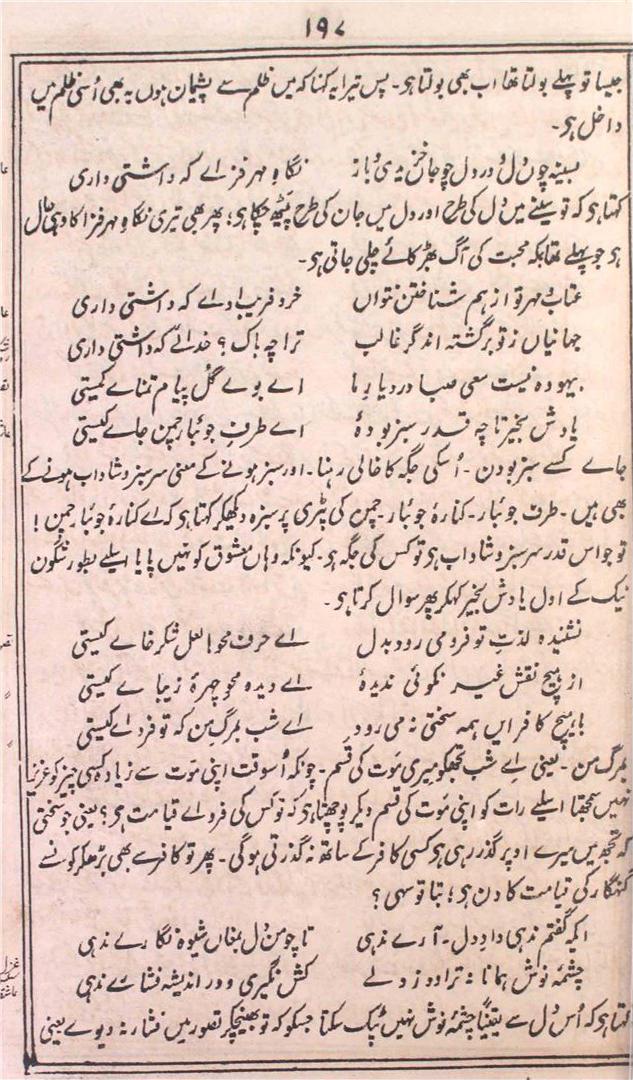 ۱۹۷
جیسا تو پہلے بولتا تھا اب بھی بولتا ہو۔ پس تیرا یہ کہنا کہ میں ظلم سے پشیمان ہوں یہ بھی اُسی ظلم میں
داخل ہو۔
بسینہ چوں دل و در دل چو جاں و باز نگاہِ مہر فزاے کہ داشتی داری
کہتا ہو کہ تو سینے میں دل کی طرح اور دل میں جان کی طرح بیٹھ چکا ہو؛ پھر بھی تیری نگاہِ مہر فزا کا وہی حال
ہو جو پہلے تھا بلکہ محبت کی آگ بھڑکائے چلی جاتی ہو۔
عتاب و مہر تو از ہم شناختن نتواں خرد فریب اداے کہ داشتی داری
جہانیاں ز تو برگشتہ اند گر غالب ترا چہ باک؟ خداے کہ داشتی داری
بیہودہ نیست سعی صبا در دیار ما اے بوے گل پیام تمناے کیستی
یادش بخیر تا چہ قدر سبز بودۂ اے طرفِ جوئبار چمن جاے کیستی
جاے کسے سبز بودن۔ اُسکی جگہ کا خالی رہنا۔ اور سبز ہونے کے معنی سرسبز و شاداب ہونے کے
بھی ہیں۔ طرف جوئبار۔ کنارۂ جوئبار۔ چمن کی پٹری پر سبزہ دیکھکر کہتا ہو کہ اے کنارۂ جوئبار چمن!
تو جو اس قدر سرسبز و شاداب ہو تو کس کی جگہ ہو۔ کیونکہ وہاں معشوق کو نہیں پایا اسلیے بطور شگون
نیک کے اول یادش بخیر کہکر پھر سوال کرتا ہو۔
نشنیدہ لذتِ تو فرو می رود بدل اے حرف محو لعل شکر خاے کیستی
از ہیچ نقش غیر نکوئی ندیدۂ اے دیدہ محو چہرۂ زیباے کیستی
با ہیچ کافر ایں ہمہ سختی نمی رود اے شب بمرگِ من کہ تو فرداے کیستی
بمرگِ من۔ یعنی اے شب تجھکو میری موت کی قسم۔ چونکہ اُسوقت اپنی موت سے زیادہ کسی چیز کو عزیز
نہیں سمجھتا اسلیے رات کو اپنی موت کی قسم دیکر پوچھتا ہو کہ تو کس کی فرداے قیامت ہو؟ یعنی جو سختی
کہ تجھ میں میرے اوپر گذر رہی ہو کسی کافر کے ساتھ نہ گذرتی ہوگی۔ پھر تو کافر سے بھی بڑھکر کونسے
گنہگار کی قیامت کا دن ہو؛ بتا تو سہی؟
ایکہ گفتم ندہی دادِ دل۔ آرے ندہی تا چو من دل بمغاں شیوہ نگارے ندہی
چشمۂ نوش ہمانا نہ تراود ز دلے کش نگیری و در اندیشہ فشارے ندہی
کہتا ہو کہ اُس دل سے یقیناً چشمۂ نوش نہیں ٹپک سکتا جسکو کہ تو بھینچکر تصور میں فشار نہ دیوے یعنی